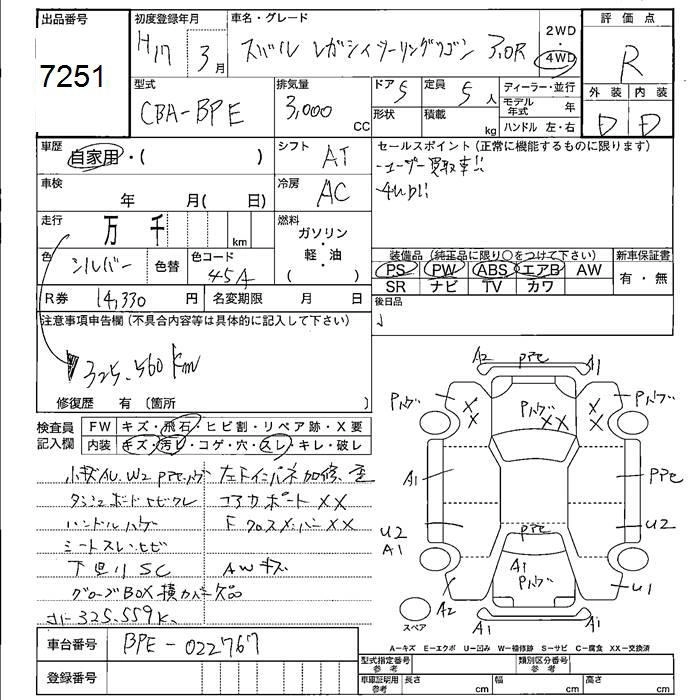 出品番号
7251
初度登録年月
H17 3月
車名・グレード
スバル レガシィツーリングワゴン 3.0R
2WD
・
4WD
評価点
R
型式
CBA-BPE
排気量
3,000 CC
ドア 5
定員 5人
形状
積載 kg
ディーラー・並行
モデル年式 年
ハンドル 左・右
外装 内装
D D
車歴
自家用・( )
シフト AT
セールスポイント(正常に機能するものに限ります)
ユーザー買取車!!
4WD!!
車検
年 月( 日)
冷房 AC
走行
万 千 km
燃料
ガソリン
・
軽・油
( )
色 シルバー 色替
色コード 45A
装備品(純正品に限り○をつけて下さい)
PS PW ABS エアB AW
SR ナビ TV カワ
新車保証書
有・無
R券 14,330 円
名変期限 月 日
後日品
注意事項申告欄(不具合内容等は具体的に記入して下さい)
325,560km
修復歴 有〔箇所 〕
検査員
記入欄
FW キズ・飛石・ヒビ割・リペア跡・X要
内装 キズ・汚れ・コゲ・穴・スレ・キレ・破レ
小キズAU.W2 PPTP.ハゲ
左右インパネ加修、歪
ダッシュボードヒビワレ
コアサポートXX
ハンドルハゲ
FクロスメンバーXX
シートスレ.ヒビ
下回りSC
AWキズ
グローブBOX横カバー欠品
コハ-325.559K
車台番号 BPE-022767
登録番号
A2 PPTP A1
Pハゲ X X
Pハゲ XX
X X Pハゲ
A1
PPTP
U2
A1
PPTP
U2
A1
Pハゲ
A2
U1
A1 A1
スペア
A−キズ E−エクボ U−凹み W−補修跡 S−サビ C−腐食 XX−交換済
型式指定番号
参考
類別区分番号
参考
車庫証明用
参考
長さ cm 幅 cm 高さ cm